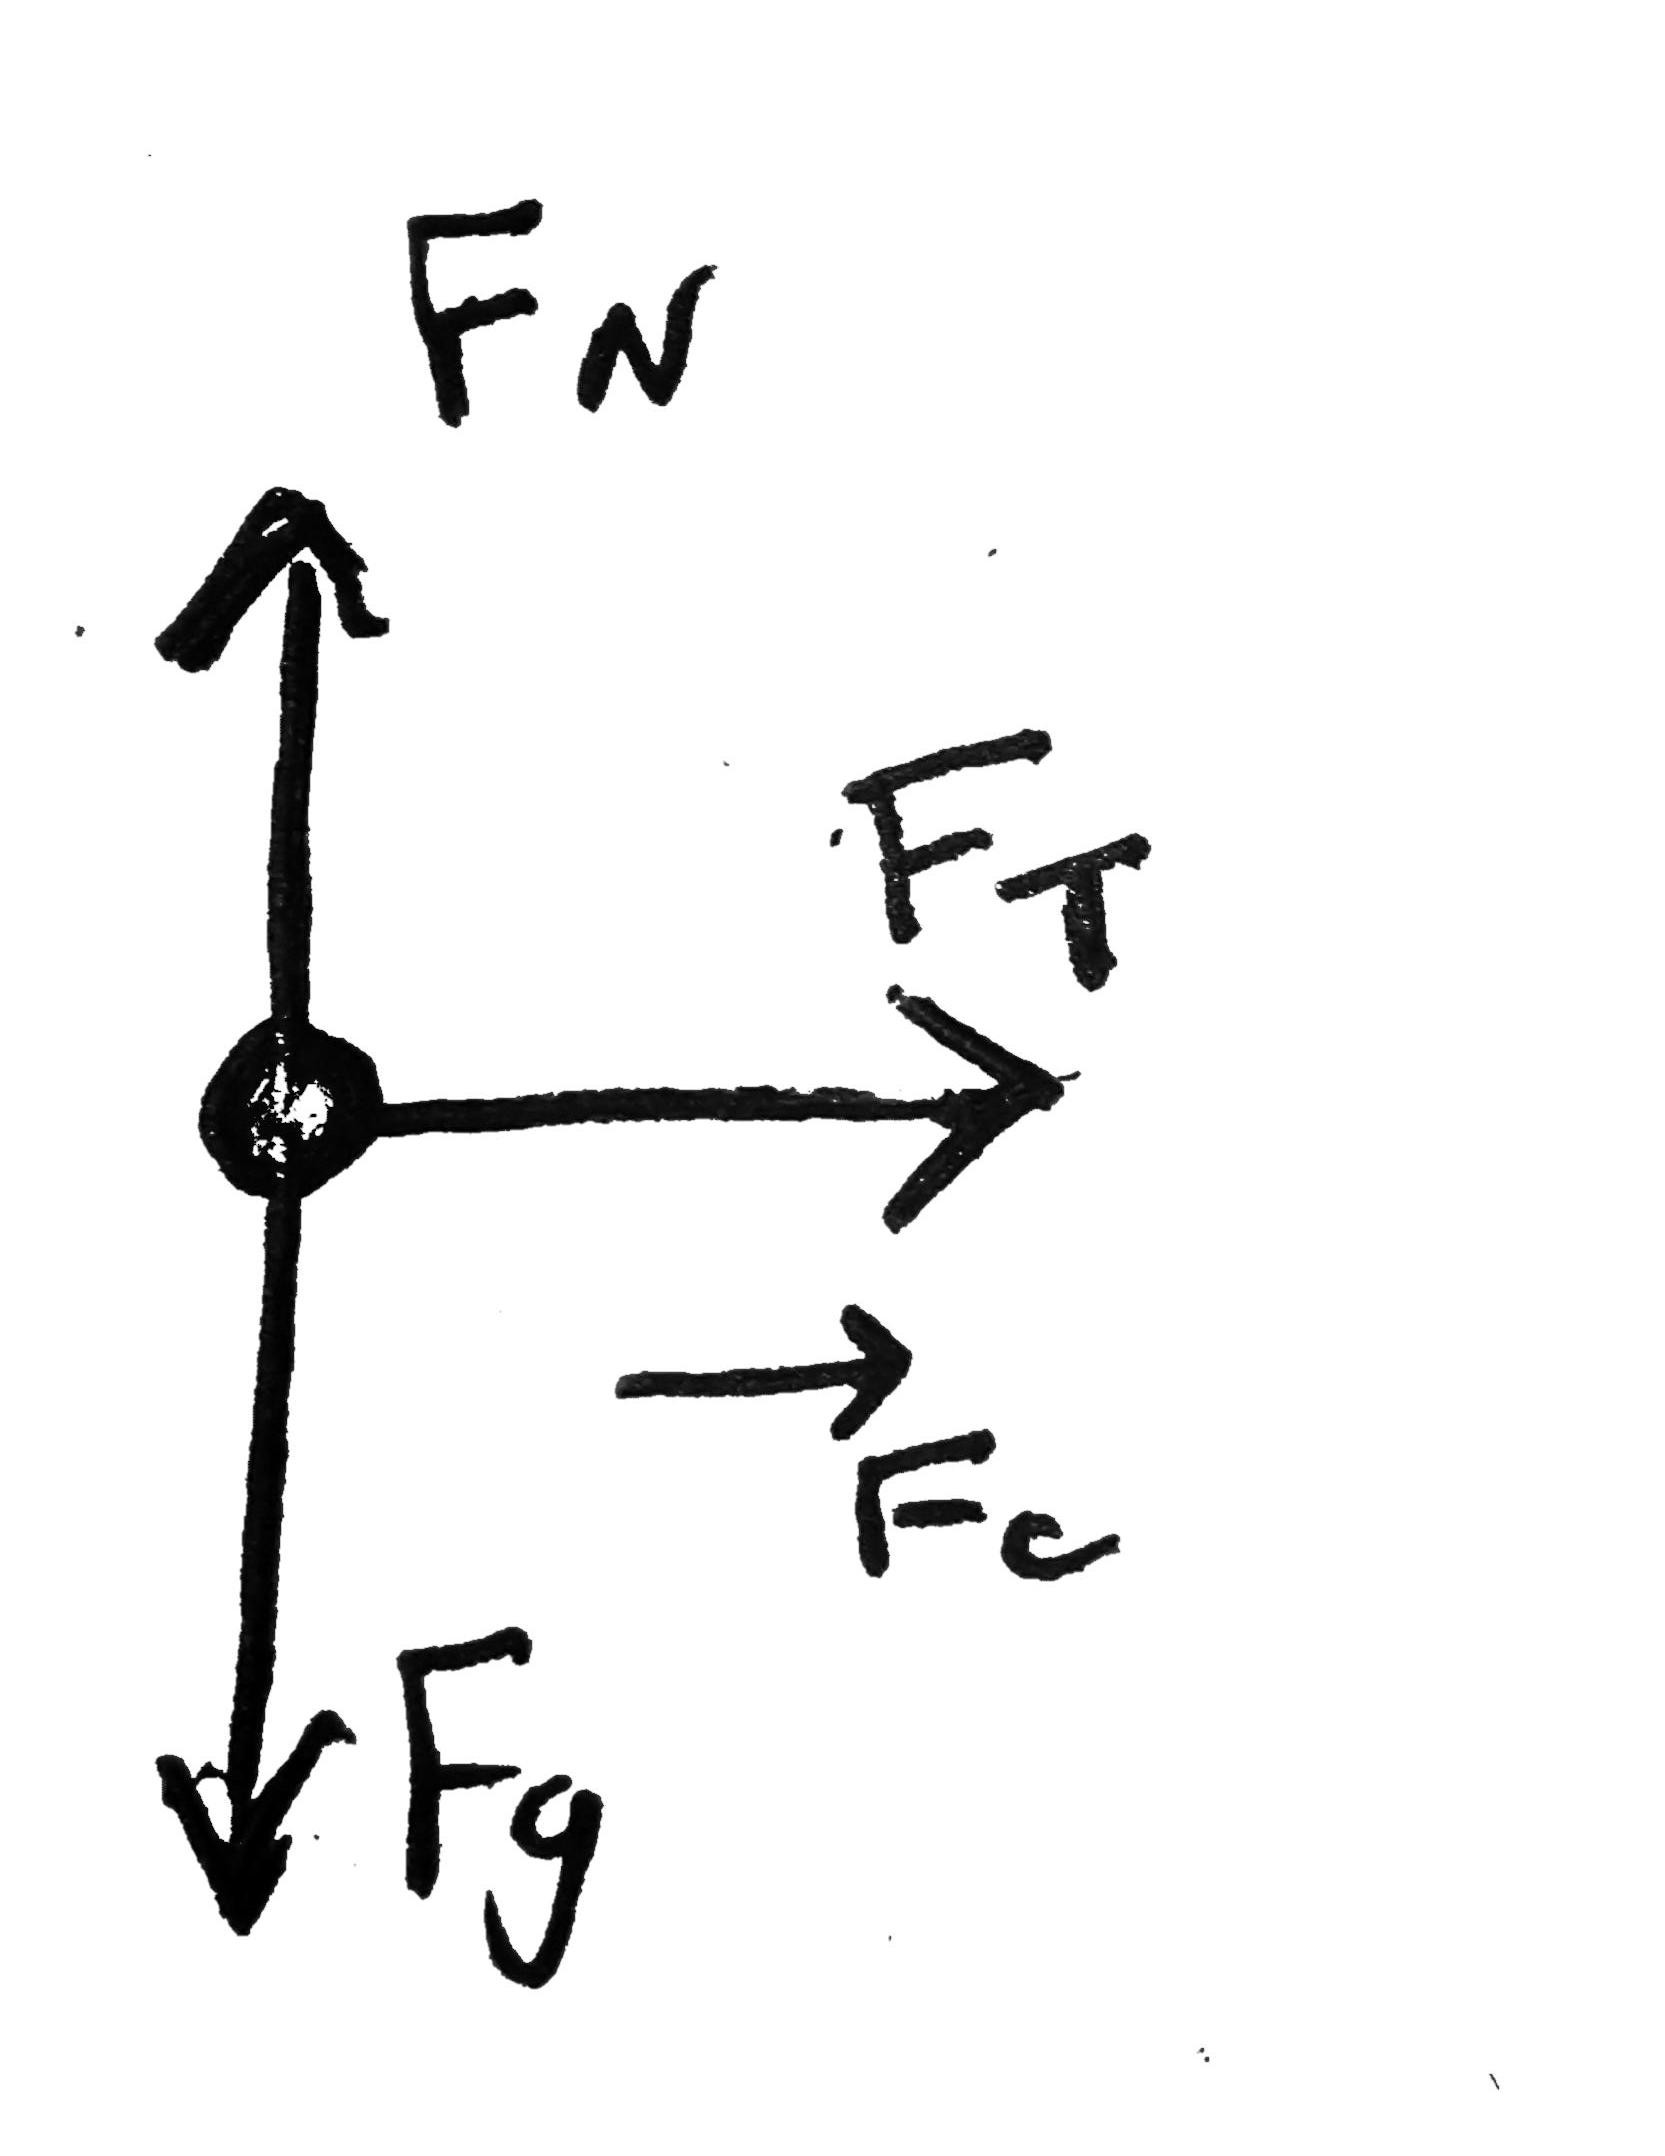 FN
FT
Fc
Fg